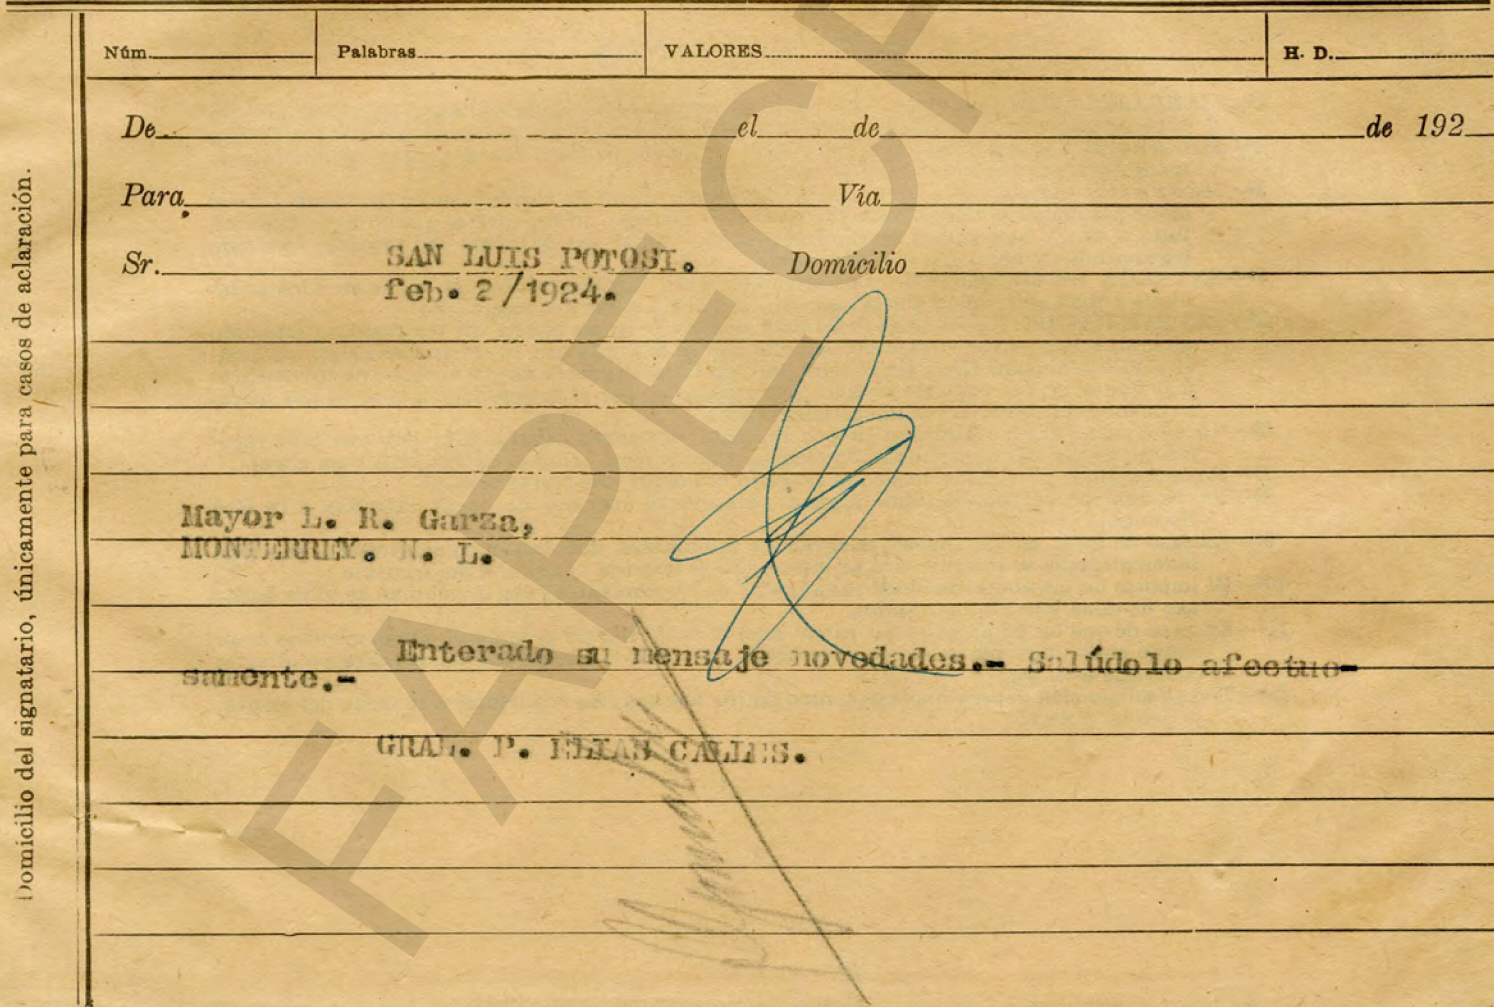 Núm. Palabras VALORES H. D.
De el de de 192
Para Vía
Sr. SAN LUIS POTOSI. Domicilio
feb. 2/1924.
Mayor L. R. Garza,
MONTERREY. N. L.
Enterado su mensaje novedades.- Salúdolo afectuo-
samente.-
GRAL. P. ELIAS CALLES.
Domicilio del signatario, únicamente para casos de aclaración.
FAPEC